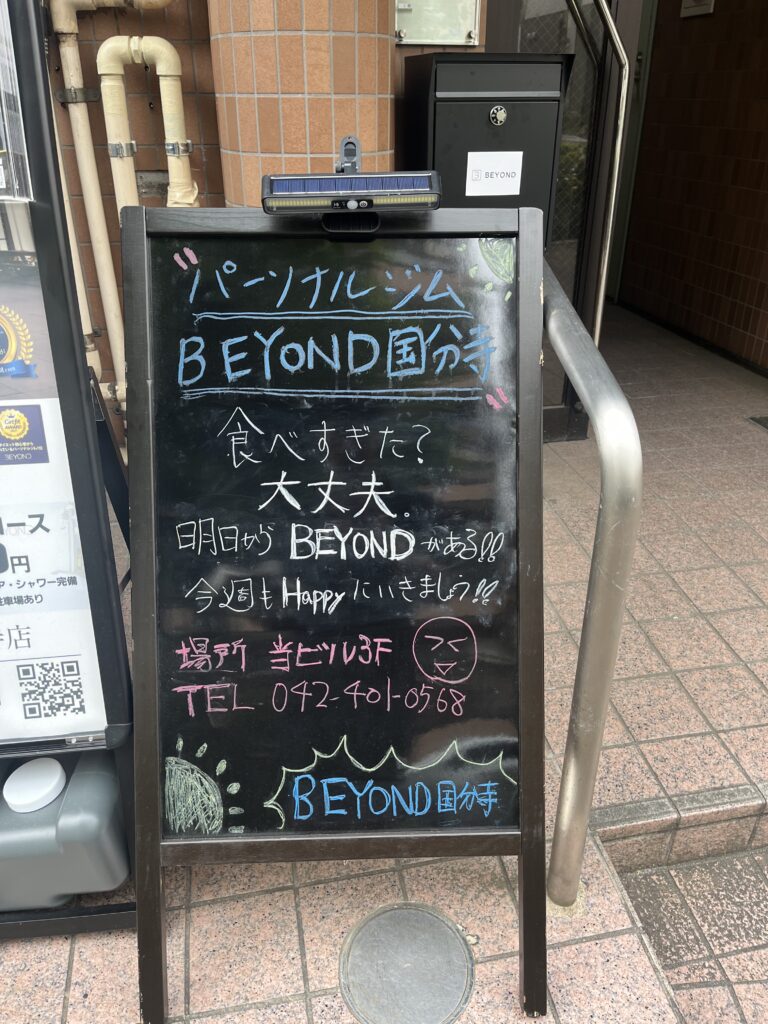 BEYOND
"パーソナルジム
BEYOND国分寺"
食べすぎた?
大丈夫。
明日から BEYONDがある!!
今週も Happyにいきましょう!!
場所 当ビル3F
TEL 042-401-0568
BEYOND国分寺
コース
円
ア・シャワー完備
駐車場あり
寺店
BEYOND